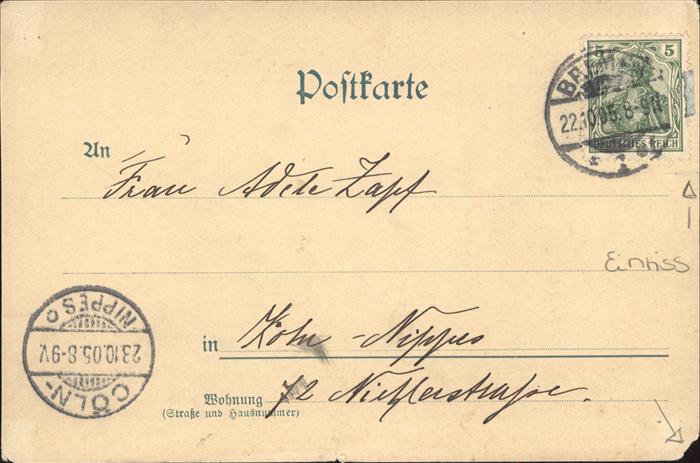 Postkarte
5 5
DEUTSCHES REICH
22.10.05.8-9N
An
Frau Adele Zapf
Einriss
in Köln-Nippes
Wohnung 72
(Straße und Hausnummer)
CÖLN-
NIPPES c
23.10.05.8-9V